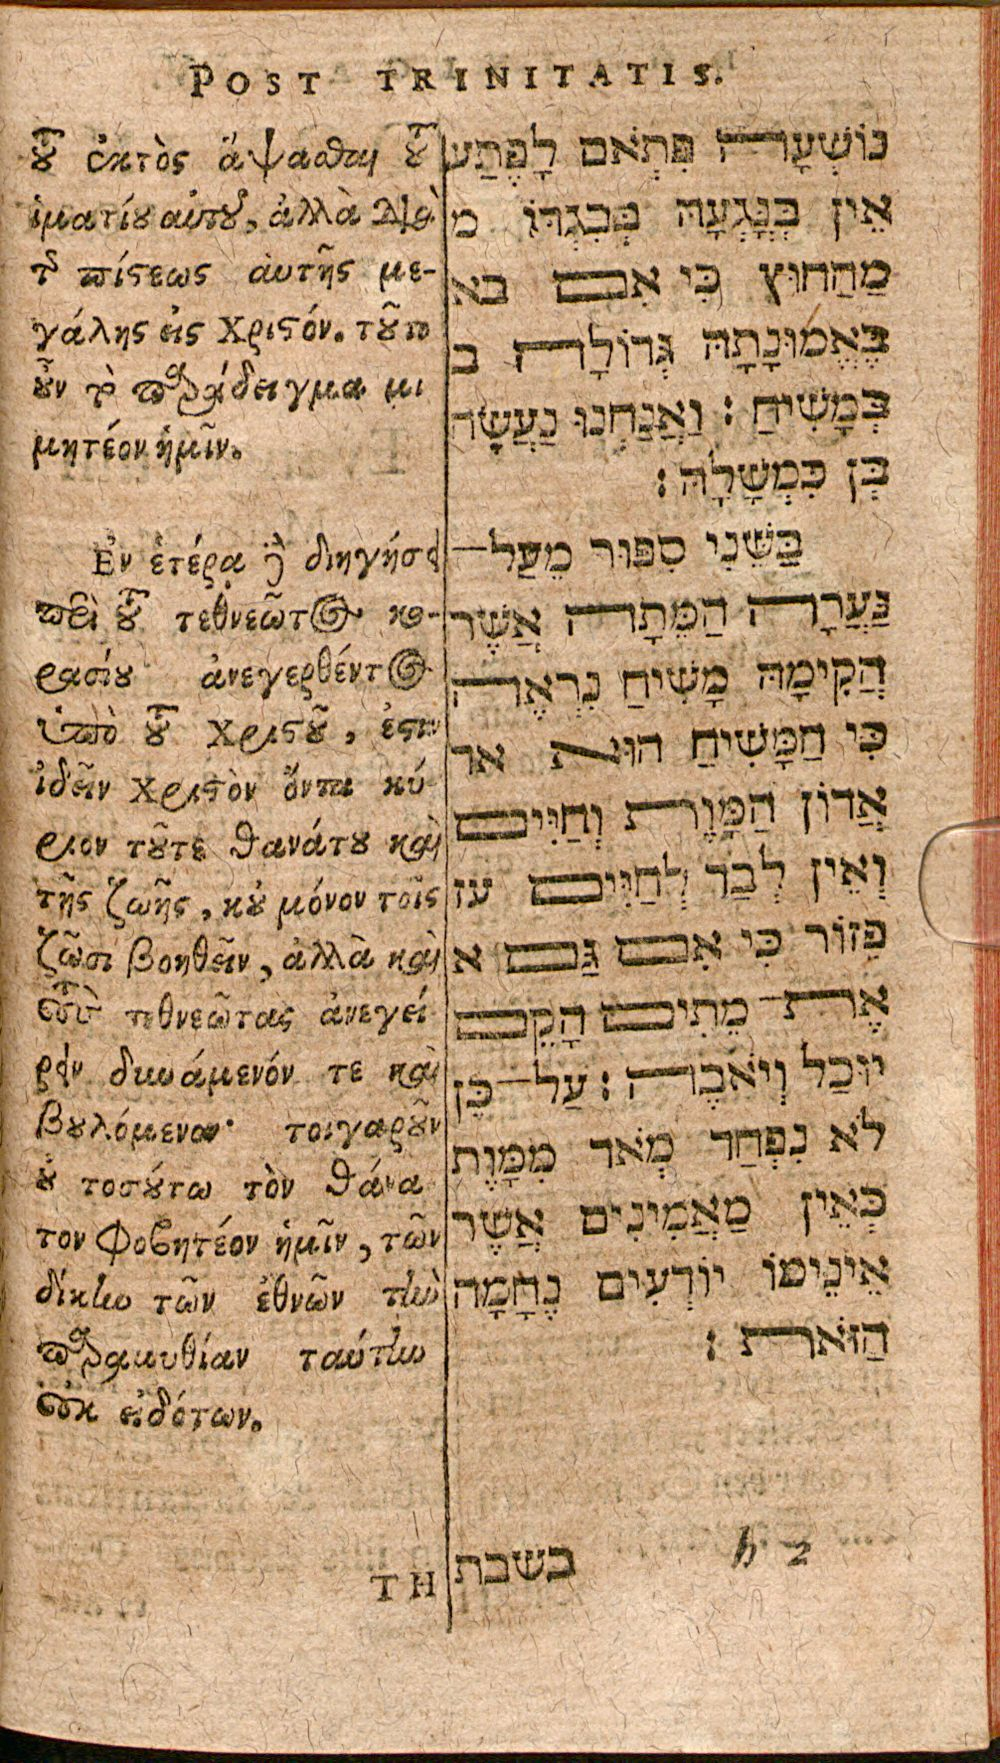 POST TRINITATIS.
τοῦ ἐκτὸς ἅψασθαι τοῦ
ἱματίου αὐτοῦ, ἀλλὰ διὰ
τῆς πίστεως ἀυτῆς με-
γάλης εἰς Χριστόν. τοῦτο
οὖν τὸ παράδειγμα μι
μητέον ἡμῖν.
Ἐν ἑτέρᾳ δὲ διηγήσει
περὶ τοῦ τεθνεῶτος κο-
ρασίου ἀνεγερθέντος
ὑπὸ τοῦ Χριστοῦ, ἔστιν
ἰδεῖν Χριστὸν ὄντα κύ-
ριον τοῦτε θανάτου καὶ
τῆς ζωῆς, κοὐ μόνον τοῖς
ζῶσι βοηθεῖν, ἀλλὰ καὶ
τοὺς τεθνεῶτας ἀνεγεί
ρειν δυνάμενόν τε καὶ
βουλόμενον· τοιγαροῦν
οὐ τοσούτω τὸν θάνα
τον φοβητέον ἡμῖν, τῶν
δίκην τῶν ἐθνῶν τὴν
παραμυθίαν ταύτην
οὐκ εἰδότων.
ΤΗ
נוֹשְׁעָה פִּתְאֹם לָפֶתַע
אֵין בְּנָגְעָהּ בְּבִגְדּוֹ מ
מַהַחוּץ כִּי אִם בא
בֶּאֱמוּנָתָהּ גְּדוֹלָה ב
בְּמָשִׁיחַ : וַאֲנַחְנוּ נַעֲשֶׂה
כְּן כִּמְשָׁלָהּ :
בַּשֵּׁנִי סִפּוּר מֵעַל־
נַּעֲרָה הַמֵּתָה אֲשֶׁר
הֱקִימָהּ מָשִׁיחַ נִרְאֶה
כִּי הַמָּשִׁיחַ הוּא אד
אֲדוֹן הַמָּוֶת וְחַיִּים
וְאֵין לְבַד לְחַיִּים עז
כִּי אִם גַּם א
אֶת־ מֵתִים הָקֵם
יוּכַל וְיֹאבֶה : עַל־ כֵּן
לֹא נִפְחַד מְאֹד מִמָּוֶת
כְּאֵין מַאֲמִינִים אֲשֶׁר
אֵינֵימוֹ יוֹדְעִים נֶחָמָה
הַזּאֹת :
בשבת
h 2